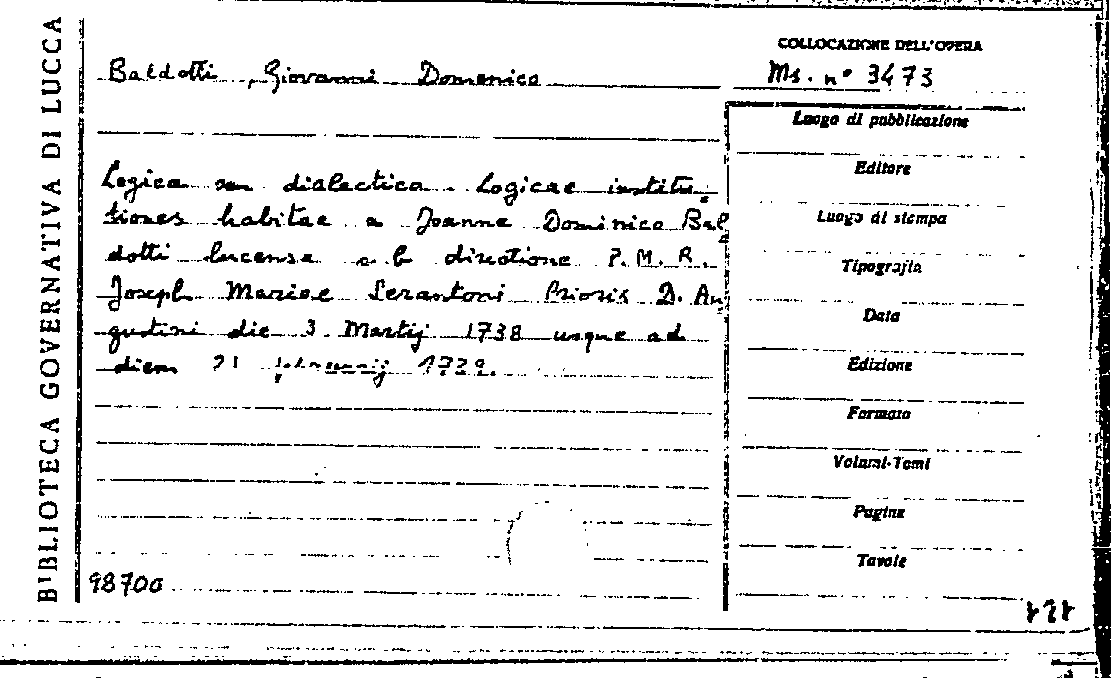 BIBLIOTECA GOVERNATIVA DI LUCCA
Baldotti, Giovanni Domenico
COLLOCAZIONE DELL'OPERA
Ms. n° 3473
Logica seu dialectica. Logicae institu-
tiones habitae a Joanne Dominico Bal
dotti lucense sub directione P. M. R.
Joseph Mariae Serantoni Prioris D. Au
gustini die 3 Martij 1738 usque ad
diem 21 februarij 1739.
98700
Luogo di pubblicazione
Editore
Luogo di stampa
Tipografia
Data
Edizione
Formato
Volumi-Tomi
Pagine
Tavole